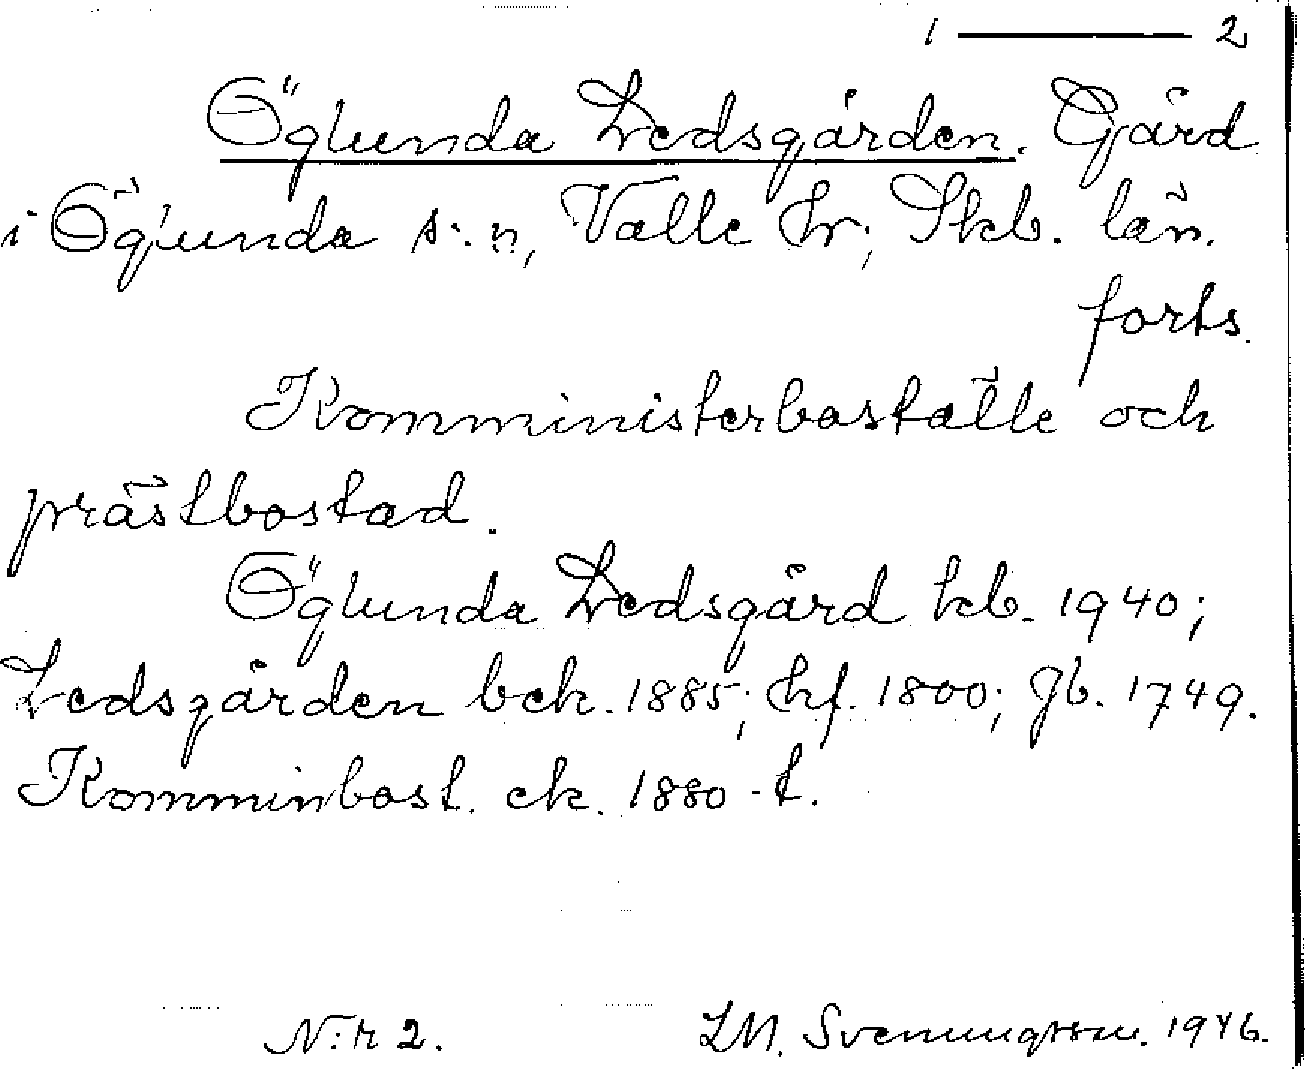 1 ——— 2
Öglunda Ledsgården. Gård
i Öglunda s:n, Valle hr; Skb. län.
forts.
Komministerboställe och
prästbostad.
Öglunda Ledsgård kb. 1940;
Ledsgården bek. 1885; hf. 1800; Jb. 1749.
Komminbost. ek. 1880-t.
N:r 2.
LM. Svenungsson. 1946.